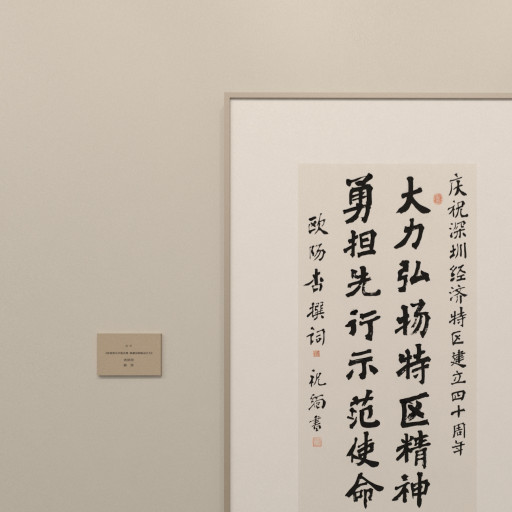 庆祝深圳经济特区建立四十周年
大力弘扬特区精神
勇担先行示范使命
欧阳杳撰词 祝绚书